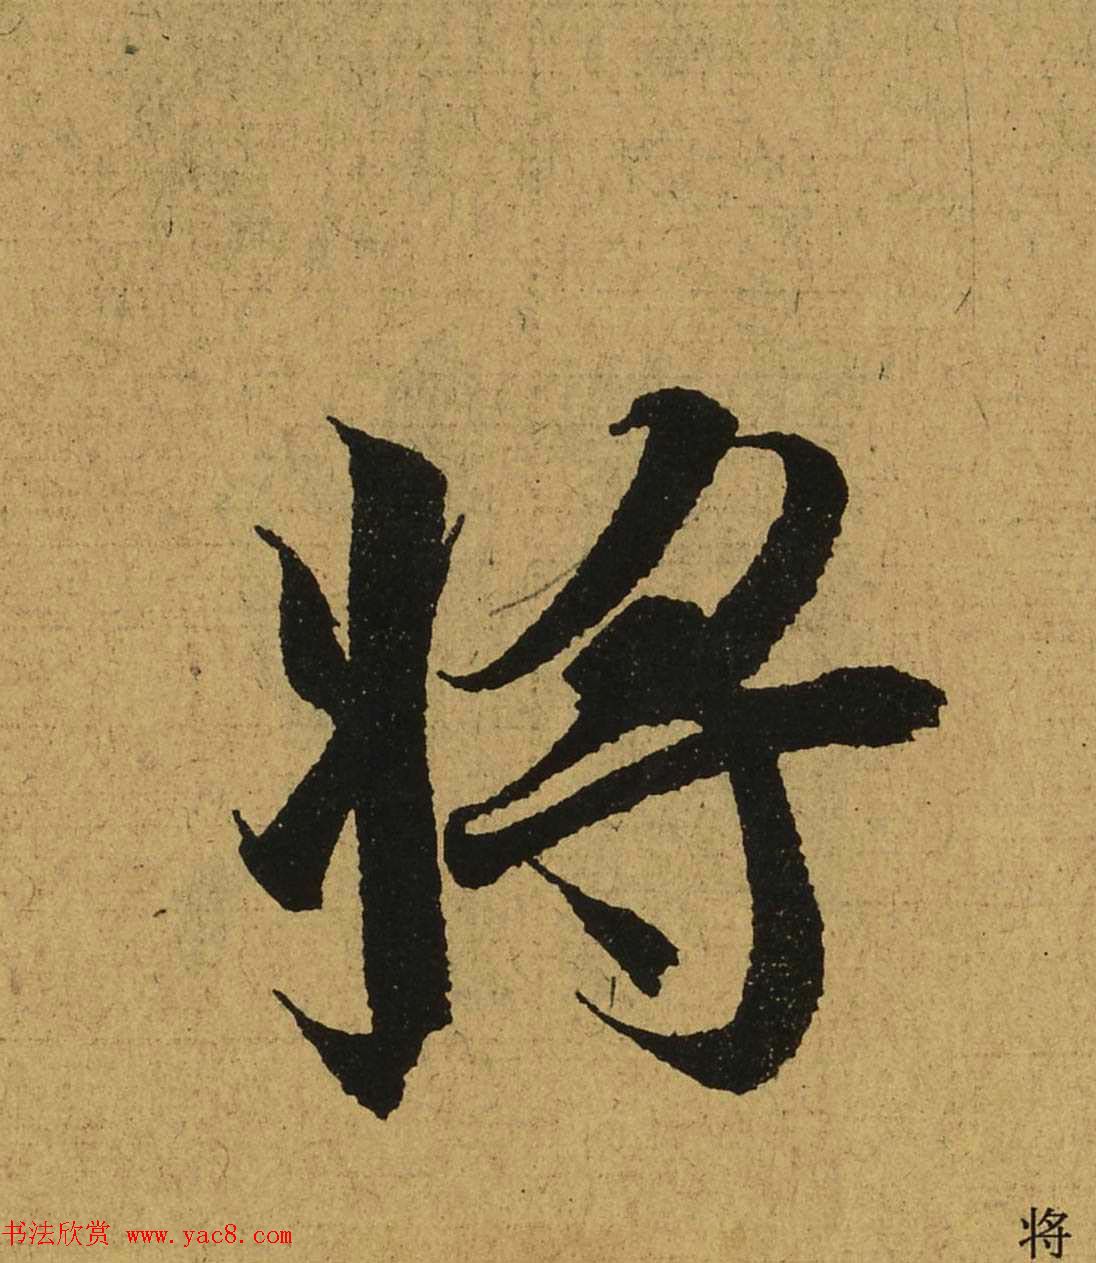 将
书法欣赏 www.yac8.com
将